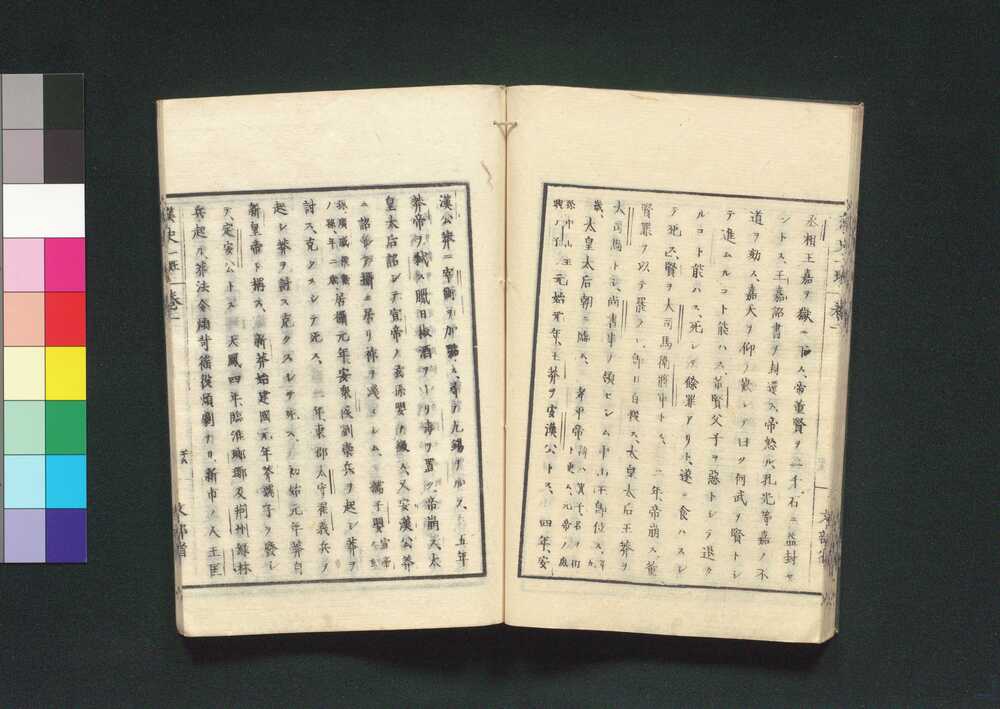 丞相王嘉ヲ獄ニ下ス、帝董賢ヲ二千石ニ益封セ
ントス、王嘉詔書ヲ封還ス、帝怒ル、孔光等嘉ノ不
道ヲ劾ス、嘉天ヲ仰ノ歎シテ曰ク何武ヲ賢トシ
テ進ムルコト能ハス、董賢父子ヲ惡トシテ退ク
ルコト能ハス、死シテ餘罪アリト、遂ニ食ハスシ
テ死ス、賢ヲ大司馬衛將軍トス、二年、帝崩ス、董
賢罪ヲ以テ罷ラ、即日自殺ス、太皇太后王莽ヲ
大司馬トシ、尚書事ノ領セシム、中山王即位ス、
太皇太后朝ニ臨ム、孝平帝
元始元年、王莽ヲ安漢公トス、四年、安
漢公莽ニ宰衡ヲ加賜ス、莽ノ九錫ヲ加フ、五年
莽帝ヲ弑ス臘日椒酒ヲ上リ毒ヲ置ク、帝崩ス太
皇太后詔シテ宣帝ノ玄孫嬰ヲ徴ス、又安漢公莽
ニ詔シテ攝ニ居リ祚ヲ踐マシム、孺子嬰
居攝元年、安衆侯劉崇兵ヲ起シ莽ヲ
討ス、克タスシテ死ス、二年、東郡太守翟義兵ヲ
起シ莽ヲ討ス克タスシテ死ス、初始元年莽自
新皇帝ト稱ス、新莽始建國元年莽孺子ヲ廢シ
テ、定安公トス、天鳳四年、臨淮瑯瑯及荊州緑林
兵起ル、莽法令煩苛徭役煩劇ナリ、新市ノ人王匡
漢史一班
卷一
文部省